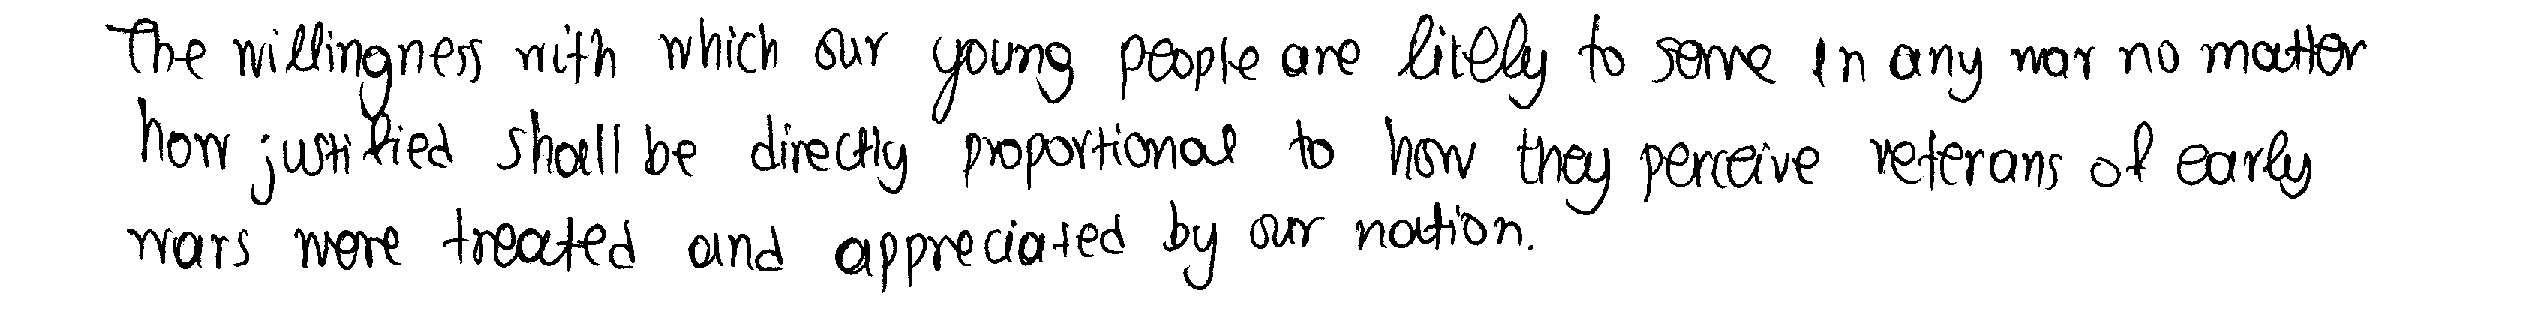 The willingness with which our young people are likely to serve in any war no matter
how justified shall be directly proportional to how they perceive veterans of early
wars were treated and appreciated by our nation.